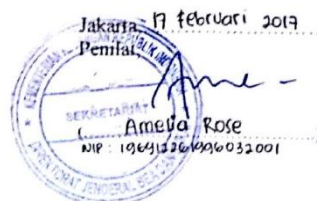 Jakarta, 17 februari 2017
Penilai,
SEKRETARIAT
( Amelia Rose
NIP : 196912261996032001